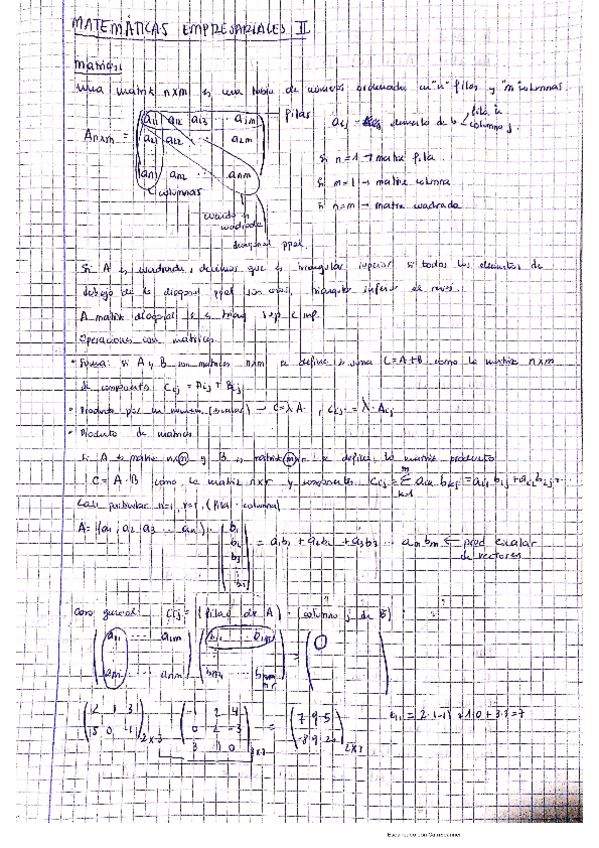 MATEMÁTICAS EMPRESARIALES II
Matrices:
Una matriz nxm es una tabla de números ordenados en "n" filas y "m" columnas.
A nxm = ( a11 a12 a13 ... a1m filas aij = elemento de la fila i, columna j.
a21 a22 ... a2m
Si n=1 → matriz fila.
an1 an2 ... anm ) Si m=1 → matriz columna
columnas Si n=m → matriz cuadrada
cuando es
cuadrada
diagonal ppal.
Si A es cuadrada, decimos que es triangular superior si todos los elementos de
debajo de la diagonal ppal son ceros, triangular inferior
A matriz diagonal si es triang sup e inf.
Operaciones con matrices
• Suma: si A y B son matrices nxm se define la suma C=A+B como la matriz nxm
de componente Cij = Aij + Bij
• Producto por un número (escalar) → C=λA. , Cij = λ·Aij
• Producto de matrices
Si A es matriz nxm y B es matriz mxr se define la matriz producto
C = A·B como la matriz nxr y componente Cij = Σ aik bkj = ai1 b1j + ai2 b2j + ...
Caso particular n=1, r=1. (fila · columna)
A = (a1 a2 a3 ... an) · ( b1
b2 = a1b1 + a2b2 + a3b3 ... ambm ← prod escalar
b3 de vectores
Caso general: Cij = (fila i de A) · (columna j de B)
( a11 ... a1m
an1 ... anm )
( 2 1 3 ( -1 2 4 ( 7 9 5 c11 = 2·(-1) + 1·0 + 3·3 = 7
5 0 -1 ) 2x3 0 2 -3 =
3 1 0 ) 3x3